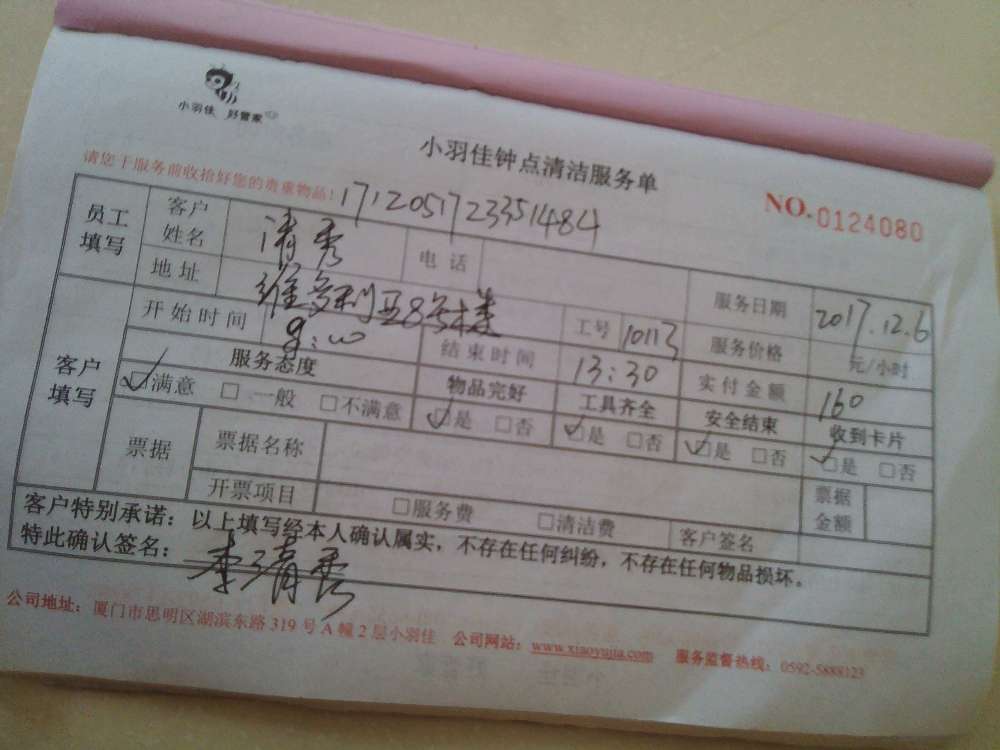 小羽佳 好管家
小羽佳钟点清洁服务单
请您于服务前收拾好您的贵重物品!
NO.0124080
1712051723351484
员工填写 客户姓名 清秀 电话 服务日期 2017.12.6
地址 维多利亚8号楼 工号 10113 服务价格 元/小时
客户填写 开始时间 9:00 结束时间 13:30 实付金额 160
服务态度 物品完好 工具齐全 安全结束 收到卡片
☑满意 □一般 □不满意 ☑是 □否 ☑是 □否 ☑是 □否 ☑是 □否
票据 票据名称 票据金额
开票项目 □服务费 □清洁费 客户签名
客户特别承诺:以上填写经本人确认属实,不存在任何纠纷,不存在任何物品损坏。
特此确认签名: 李清秀
公司地址:厦门市思明区湖滨东路319号A幢2层小羽佳 公司网站:www.xiaoyujia.com 服务监督热线:0592-5888123